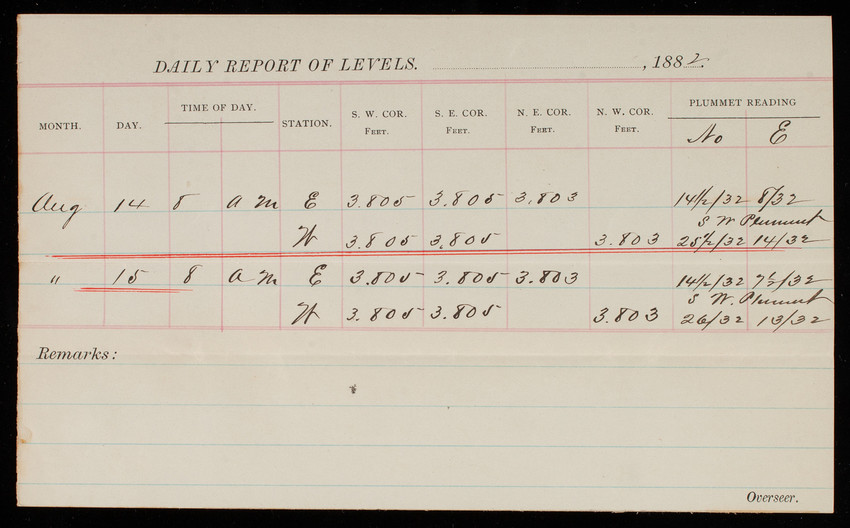 DAILY REPORT OF LEVELS. , 1882.
MONTH. DAY. TIME OF DAY. STATION. S. W. COR. FEET. S. E. COR. FEET. N. E. COR. FEET. N. W. COR. FEET. PLUMMET READING
No E
Aug 14 8 a m E 3.805 3.805 3.803 14 1/2/32 8/32
S W Plummet
W 3.805 3.805 3.803 25 1/2/32 14/32
" 15 8 a m E 3.805 3.805 3.803 14 1/2/32 7 1/2/32
S W. Plummet
W 3.805 3.805 3.803 26/32 13/32
Remarks:
Overseer.